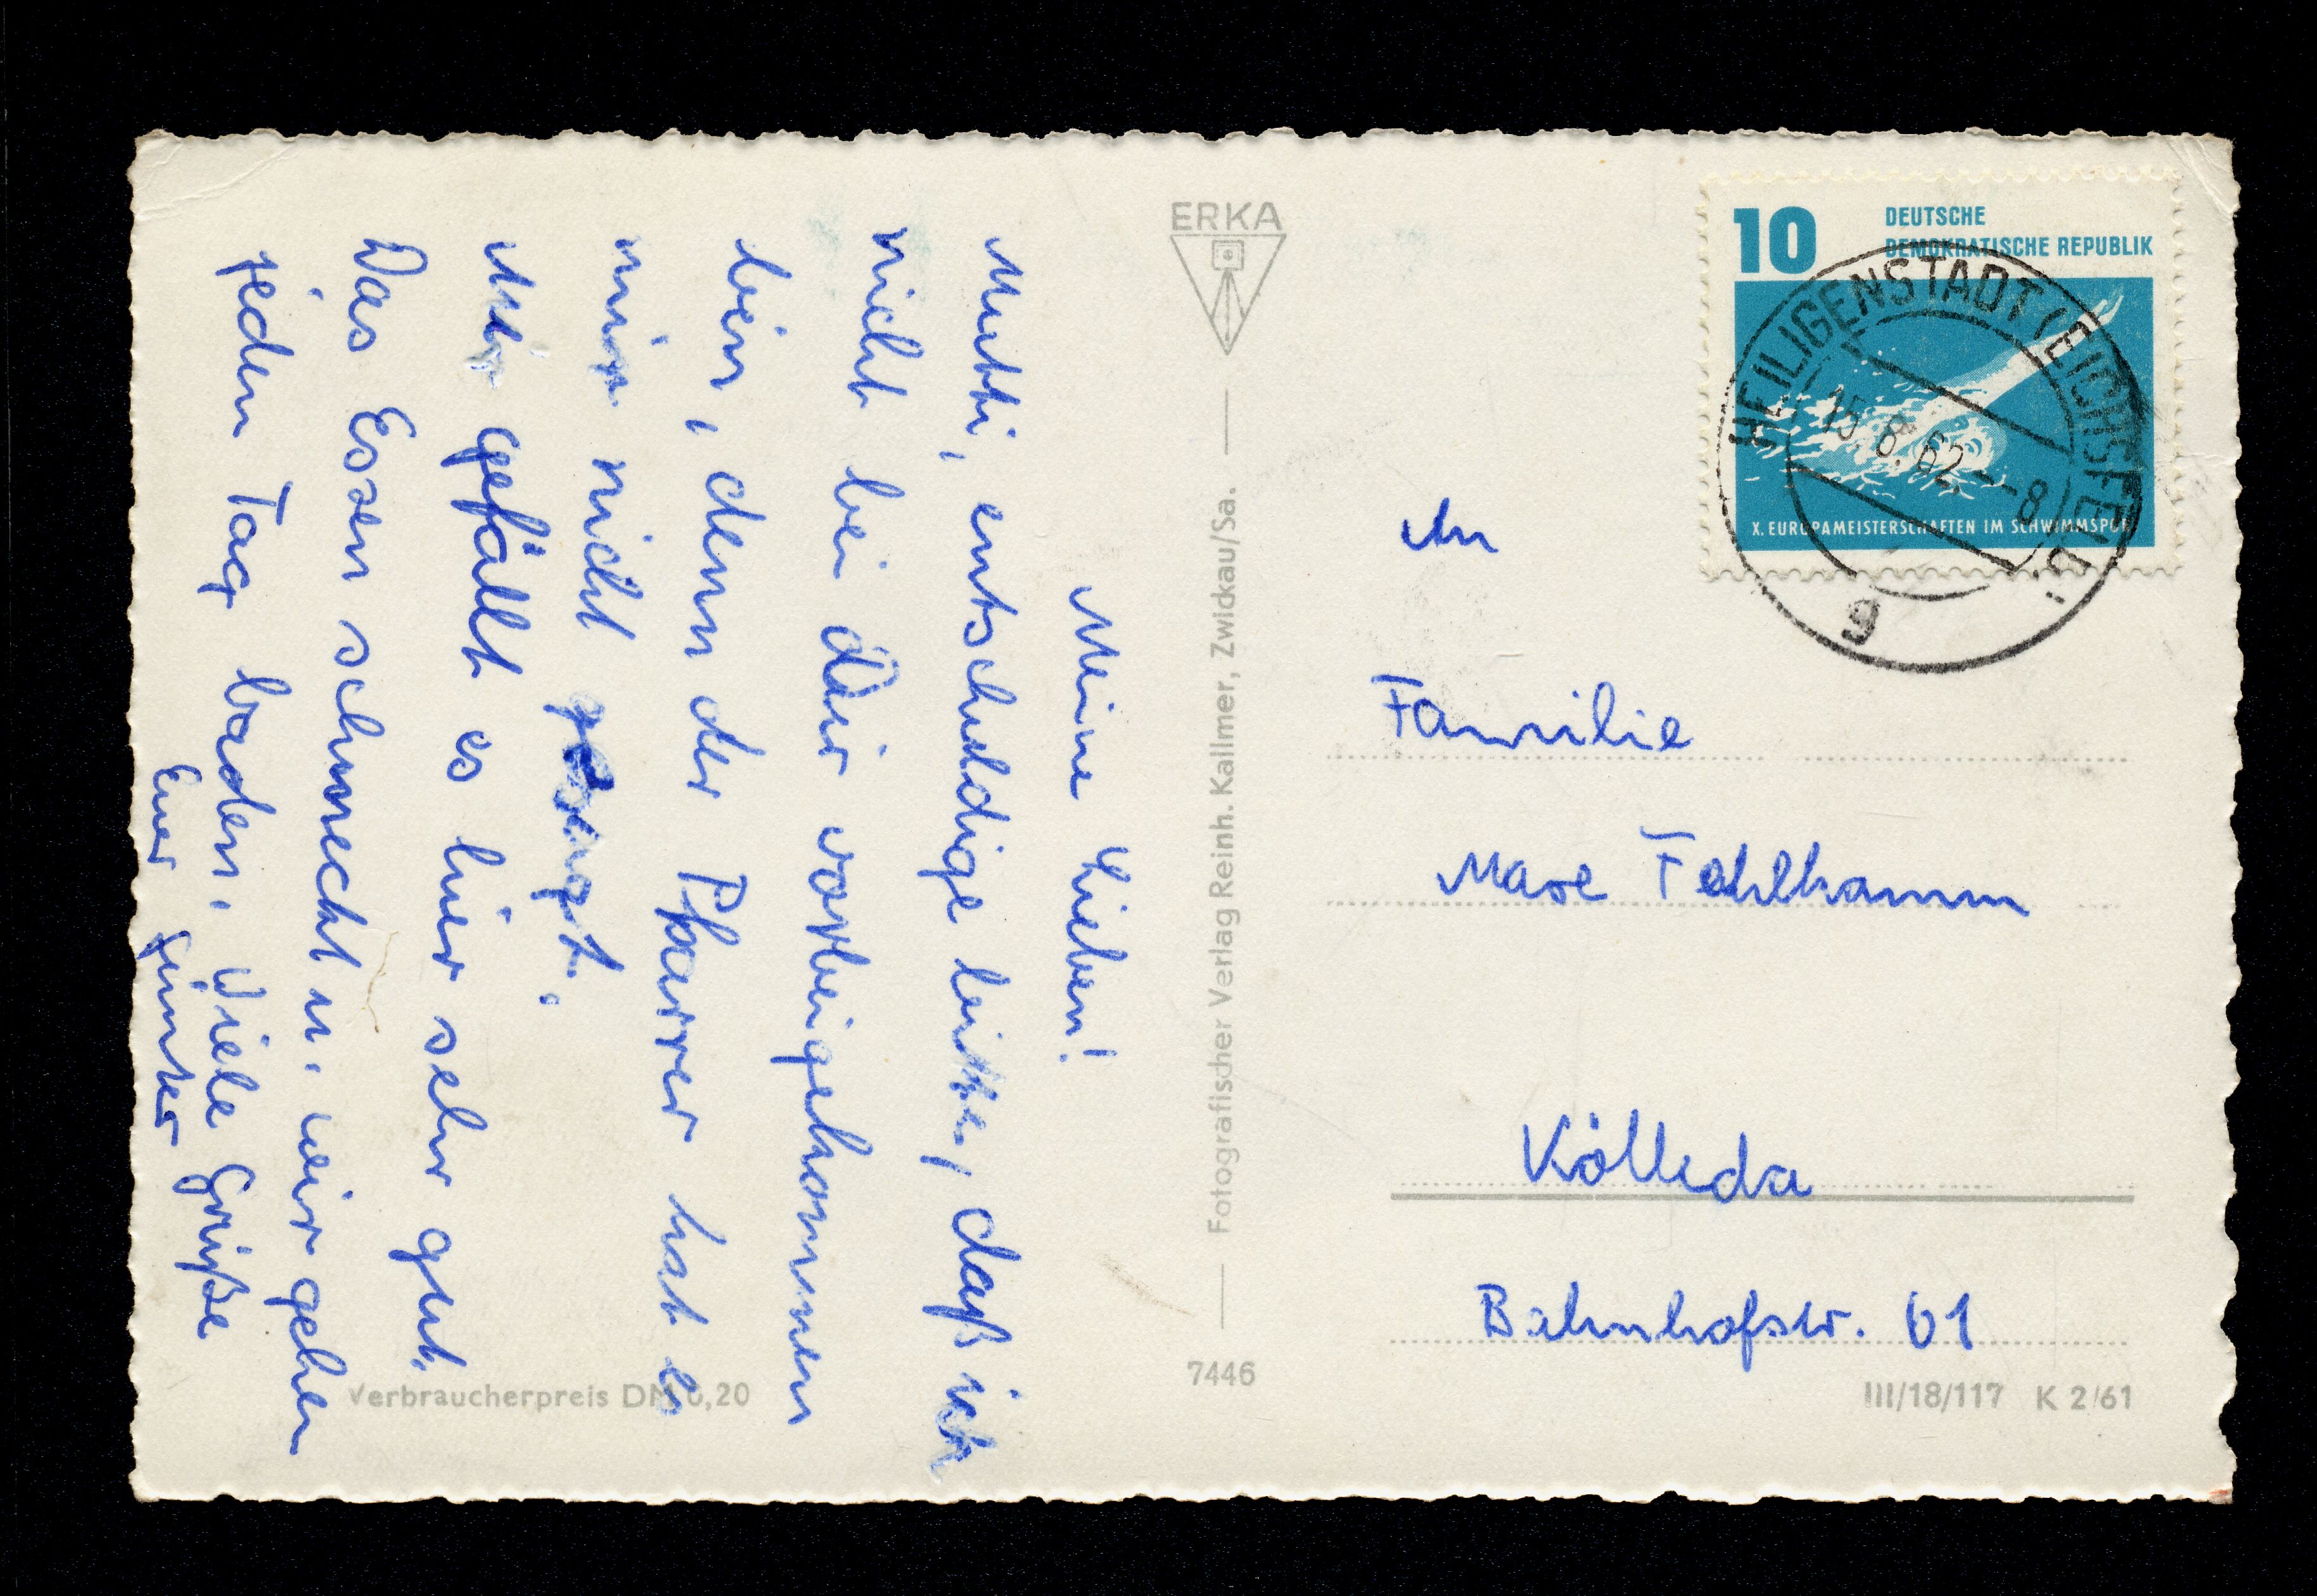 Meine Lieben!
Mutti, entschuldige bitte, daß ich
nicht bei Dir vorbeigekommen
bin, denn der Pfarrer hat es
mir nicht gesagt.
Mir gefällt es hier sehr gut.
Das Essen schmeckt u. wir gehen
jeden Tag baden. Viele Grüße
Euer Günter
ERKA
Fotografischer Verlag Reinh. Kallmer, Zwickau/Sa.
7446
Verbraucherpreis DM 0,20
10
DEUTSCHE
DEMOKRATISCHE REPUBLIK
X. EUROPAMEISTERSCHAFTEN IM SCHWIMMSPORT
HEILIGENSTADT (EICHSFELD)
15.8.62.--8
g
An
Familie
Max Fahlkamm
Kölleda
Bahnhofstr. 61
III/18/117 K 2/61